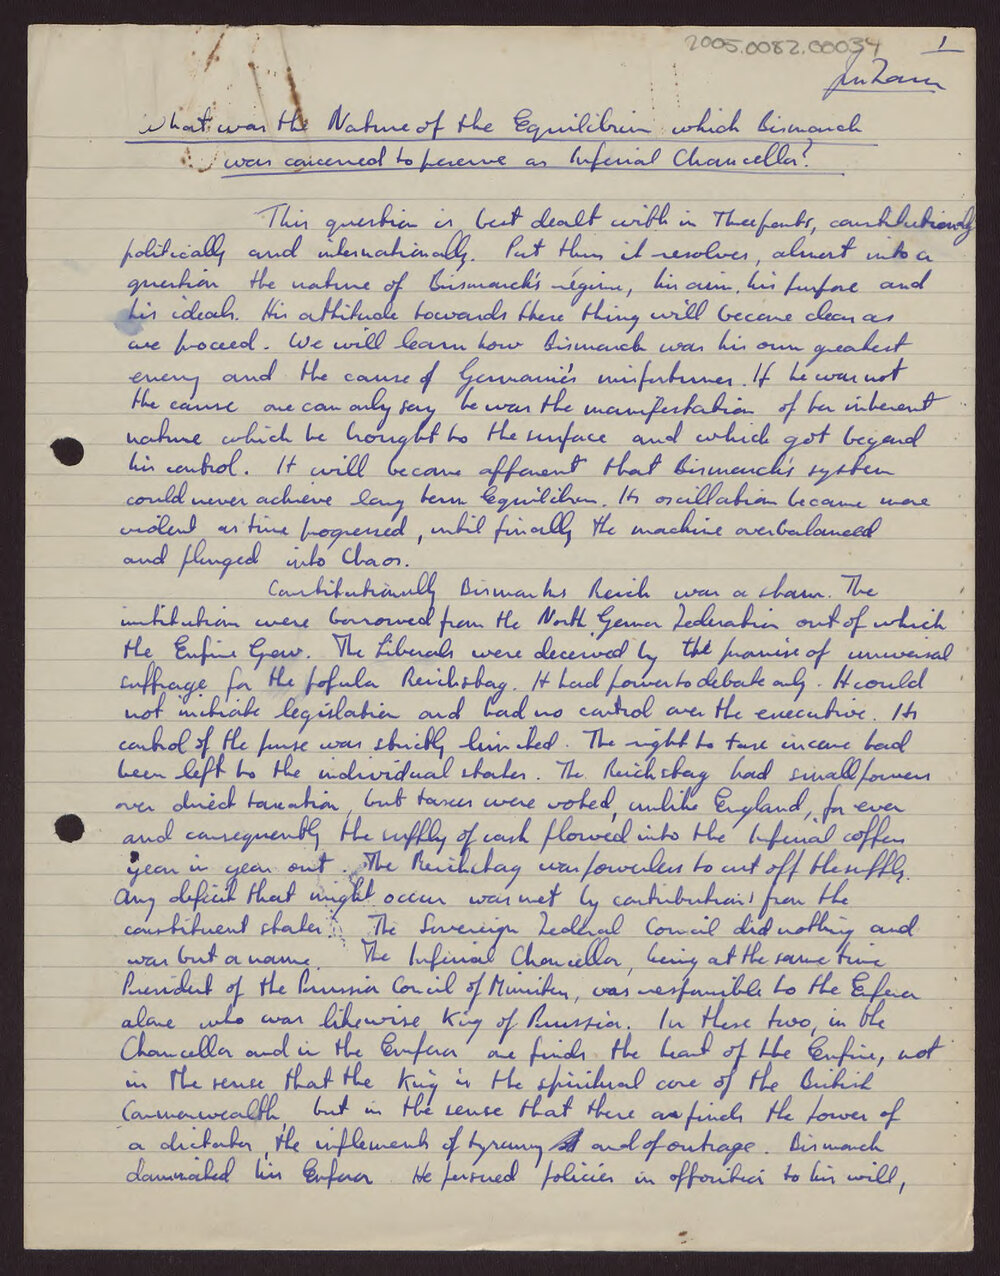 2005.0082.00034
1
What was the Nature of the Equilibrium which Bismarck
was concerned to preserve as Imperial Chancellor?
This question is best dealt with in Three parts, constitutionally
politically and internationally. Put thus it resolves, almost into a
question the nature of Bismarck's régime, his aim, his purpose and
his ideals. His attitude towards these thing will become clear as
we proceed. We will learn how Bismarck was his own greatest
enemy and the cause of Germanie's misfortunes. If he was not
the cause one can only say he was the manifestation of her inherent
nature which he brought to the surface and which got beyond
his control. It will become apparent that Bismarck's system
could never achieve long term Equilibrium. Its oscillation became more
violent as time progressed, until finally the machine overbalanced
and plunged into Chaos.
Constitutionally Bismarks Reich was a sham. The
institution were borrowed from the North German Federation out of which
the Empire Grew. The Liberals were deceived by the promise of universal
suffrage for the popular Reichstag. It had power to debate only. It could
not initiate legislation and had no control over the executive. Its
control of the purse was strictly limited. The right to tax income had
been left to the individual states. The Reichstag had small powers
over direct taxation, but taxes were voted, unlike England, for ever
and consequently the supply of cash flowed into the Imperial coffers
year in year out. The Reichstag was powerless to cut off the supply.
Any deficit that might occur was met by contributions from the
constituent states. The Sovereign Federal Council did nothing and
was but a name. The Imperial Chancellor, being at the same time
President of the Prussian Council of Ministers, was responsible to the Emperor
alone who was likewise King of Prussia. In these two, in the
Chancellor and in the Emperor one finds the heart of the Empire, not
in the sense that the King is the spiritual core of the British
Commonwealth, but in the sense that there one finds the power of
a dictator, the implements of tyranny and of outrage. Bismarck
dominated his Emperor. He pursued policies in opposition to his will,